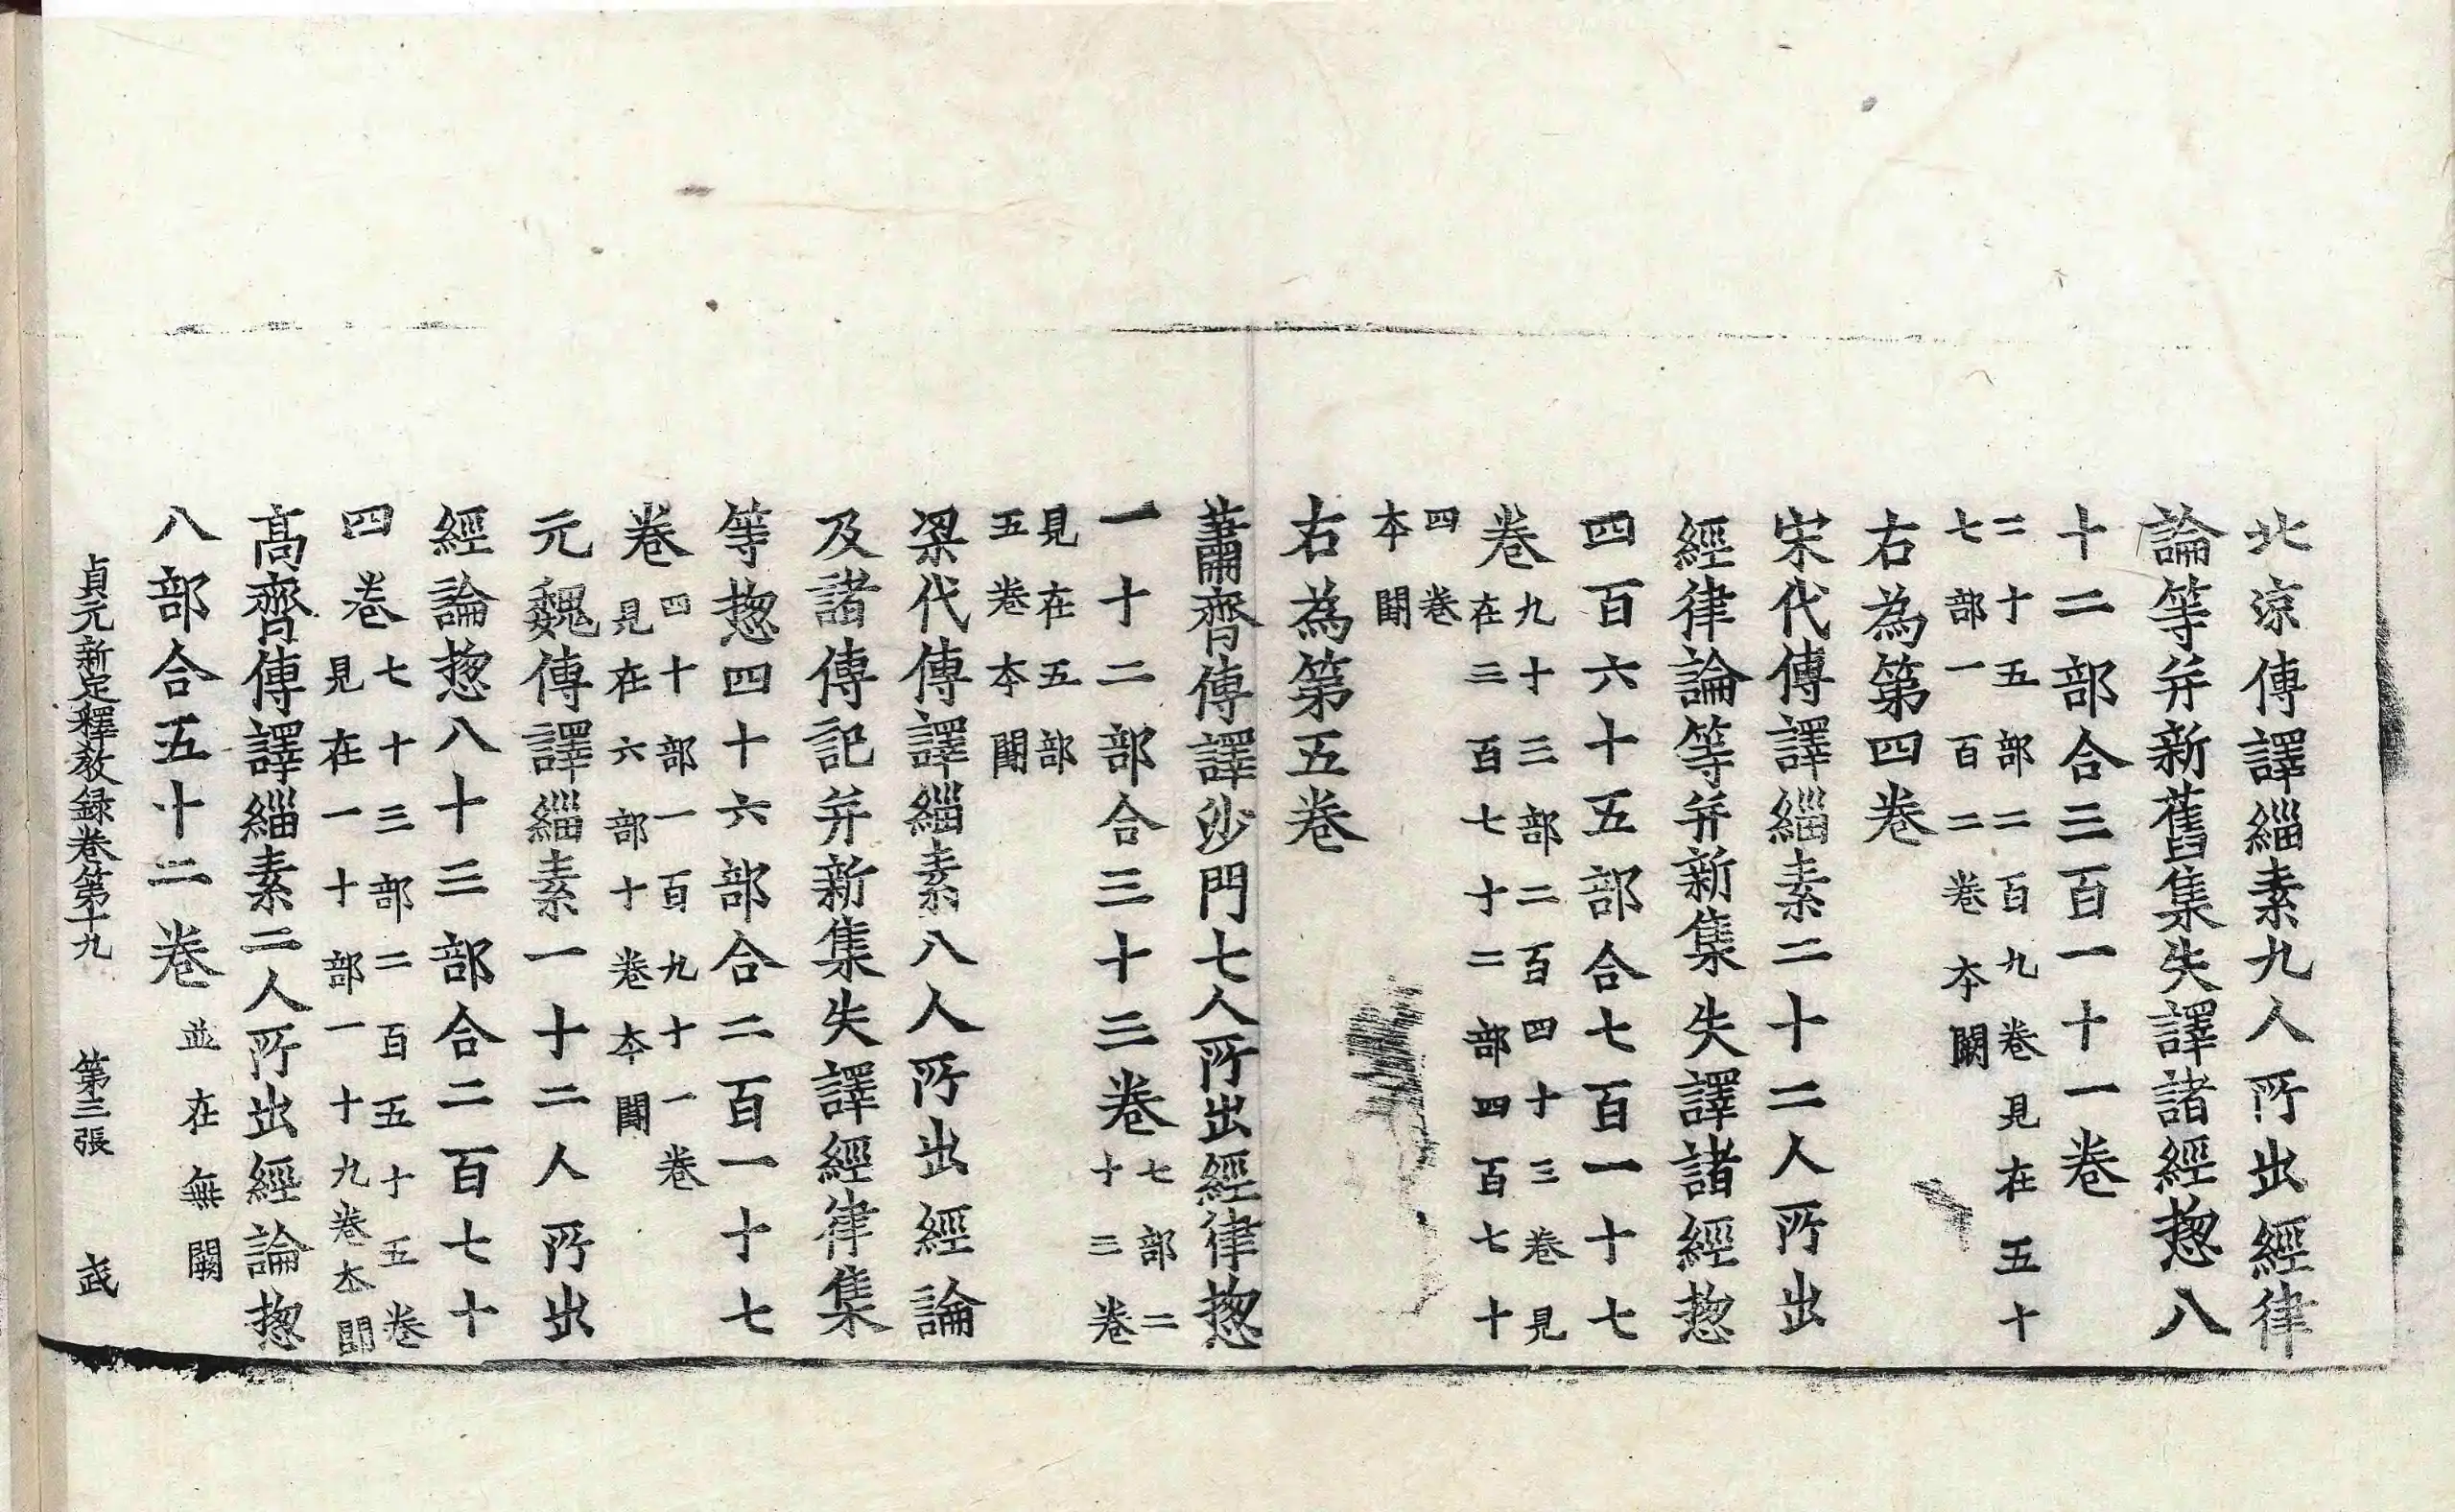 北涼傳譯緇素九人所出經律
論等并新舊集失譯諸經惣八
十二部合三百一十一卷
二十五部二百九卷見在五十
七部一百二卷本闕
右為第四卷
宋代傳譯緇素二十二人所出
經律論等并新集失譯諸經惣
四百六十五部合七百一十七
卷
九十三部二百四十三卷見
在三百七十二部四百七十
四卷
本闕
右為第五卷
蕭齊傳譯沙門七人所出經律惣
一十二部合三十三卷
七部二
十三卷
見在五部
五卷本闕
梁代傳譯緇素八人所出經論
及諸傳記并新集失譯經律集
等惣四十六部合二百一十七
卷
四十部一百九十一卷
見在六部十卷本闕
元魏傳譯緇素一十二人所出
經論惣八十三部合二百七十
四卷
七十三部二百五十五卷
見在一十部一十九卷本闕
高齊傳譯緇素二人所出經論惣
八部合五十二卷
並在無闕
貞元新定釋教録卷第十九 第三張 㢤